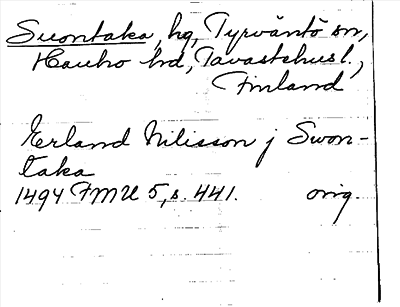 Suontaka, hg, Tyrväntö sn,
Hauho hd, Tavastehusl.,
Finland
Erland Nilisson j Swon-
taka
1494 FMU 5, s. 441. orig.